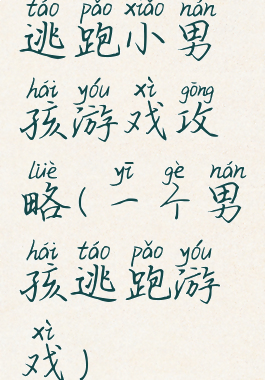 táo pǎo xiǎo nán
逃跑小男
hái yóu xì gōng
孩游戏攻
lüè yī gè nán
略(一个男
hái táo pǎo yóu
孩逃跑游
xì
戏)